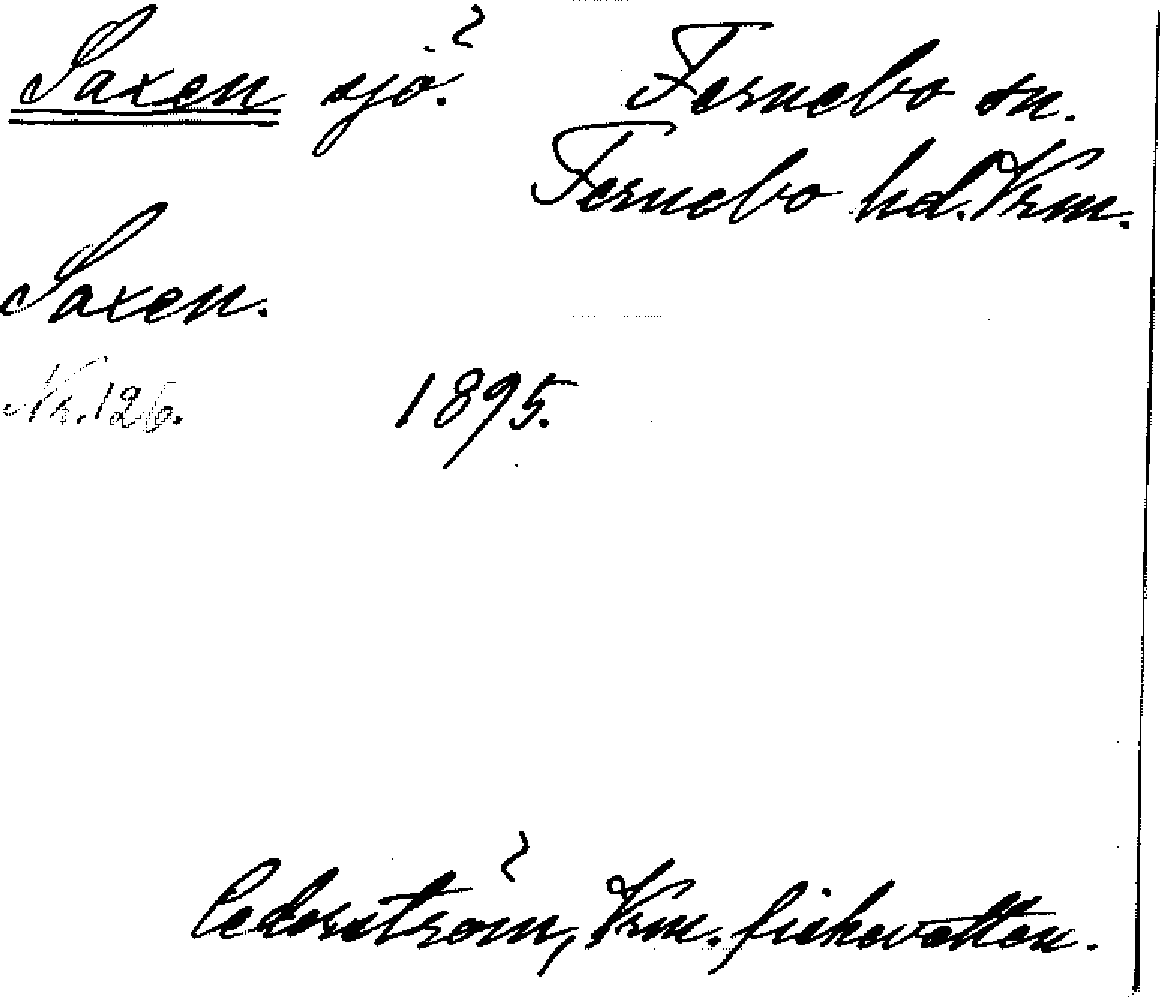 Saxen sjö. Fernebo sn.
Fernebo hd. Vrm.
Saxen.
Nr. 126. 1895.
Cederström, Vrm. fiskevatten.